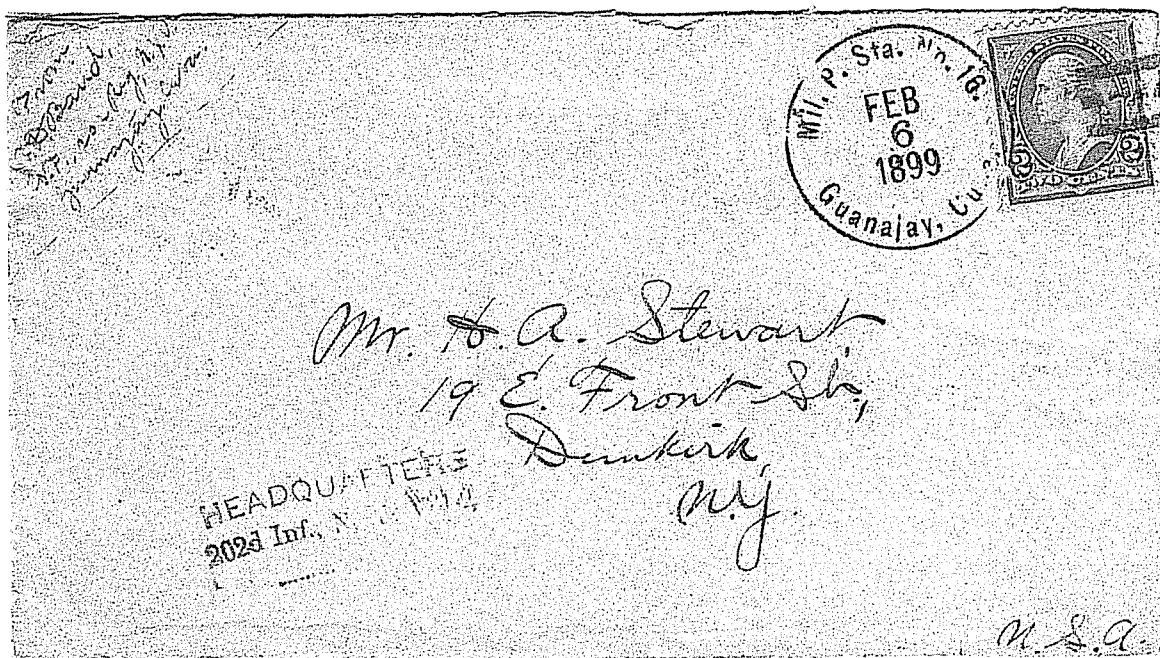 From
Band,
Mil. P. Sta. No. 16.
FEB
6
1899
Guanajay, Cu
2 2
Mr. H. A. Stewart,
19 E. Front St.,
Dunkirk,
N.Y.
HEADQUARTERS
202d Inf., N.
U.S.A.